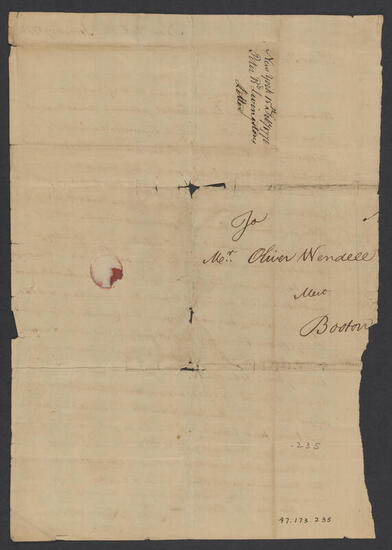 New York 15th Feby 1770
Peter R. Livingston
Letter
To
Mr. Oliver Wendell
Mert
Boston
.235
47.173.235